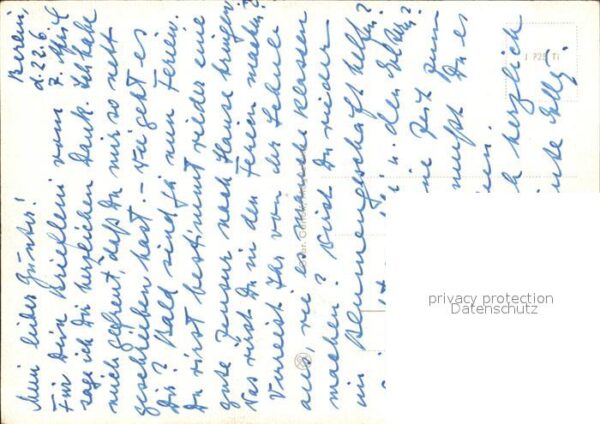 Berlin,
d. 22.6.
Mein lieber Günter!
Für Dein Brieflein vom 7. April
sage ich Dir herzlichen Dank. Ich habe
mich gefreut, daß Du mir so nett
geschrieben hast. – Wie geht es
Dir? Bald sind ja nun Ferien.
Du wirst bestimmt wieder eine
gute Zensur nach Hause bringen.
Was wirst Du in den Ferien machen?
Verreist Ihr von der Schule
aus, wie es manche Klassen
machen? Wirst Du wieder
im Blumengeschäft helfen
u. den
Zeit zum
mußt Du es
herzlich
privacy protection
Datenschutz